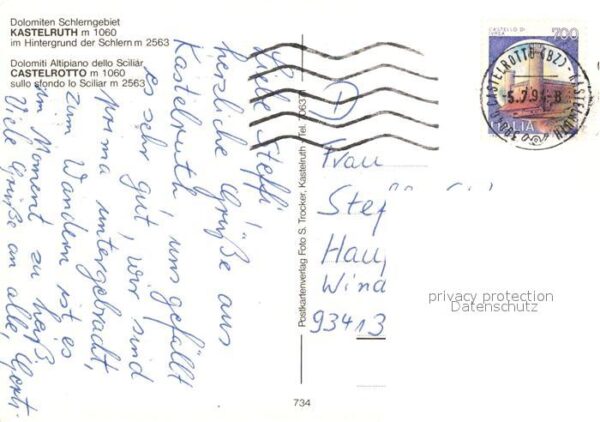 Dolomiten Schlerngebiet
KASTELRUTH m 1060
im Hintergrund der Schlern m 2563
Dolomiti Altipiano dello Sciliár
CASTELROTTO m 1060
sullo sfondo lo Sciliar m 2563
Liebe Steffi!
herzliche Grüße aus
Kastelruth, uns gefällt
es sehr gut, wir sind
prima untergebracht,
zum Wandern ist es
im Moment zu heiß
Viele Grüße an alle,
734
Postkartenverlag Foto S. Trocker, Kastelruth - Tel.
CASTELLO DI
700
ITALIA
CASTELROTTO (BZ) - KASTELRUTH
Frau
Stef
Haup
Wind
93413
privacy protection
Datenschutz